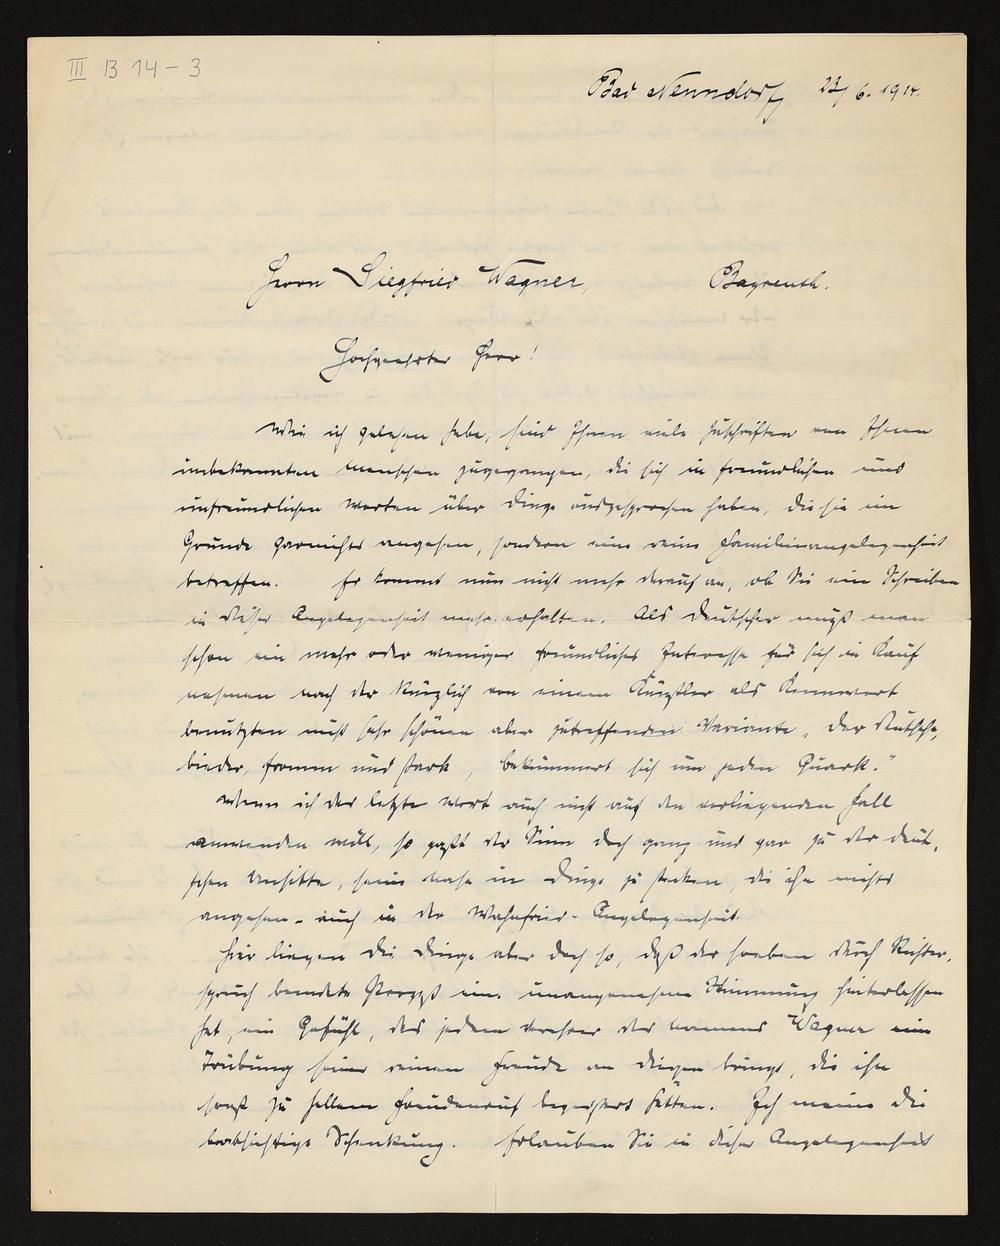 III B 14-3
Bad Nenndorf, 23/6. 1914.
Herrn Siegfried Wagner, Bayreuth.
Hochgeehrter Herr!
Wie ich gelesen habe, sind Ihnen viele Zuschriften von Ihnen
unbekannten Menschen zugegangen, die sich in freundlichen und
unfreundlichen Worten über Dinge ausgesprochen haben, die sie im
Grunde garnichts angehen, sondern eine reine Familienangelegenheit
betreffen. Es kommt nun nicht mehr darauf an, ob Sie ein Schreiben
in dieser Angelegenheit mehr erhalten. Als Deutscher muß man
schon ein mehr oder weniger freundliches Interesse für sich in Kauf
nehmen nach der kürzlich von einem Künstler als Kennwort
benutzten nicht sehr schönen aber zutreffenden Variante „Der Deutsche,
bieder, fromm und stark, bekümmert sich um jeden Quark."
Wenn ich das letzte Wort auch nicht auf den vorliegenden Fall
anwenden will, so paßt der Sinn doch ganz und gar zu der deut-
schen Unsitte, seine Nase in Dinge zu stecken, die ihn nichts
angehen - auch in der Wahnfried-Angelegenheit.
Hier liegen die Dinge aber doch so, daß der soeben durch Richter-
spruch beendete Prozeß eine unangenehme Stimmung hinterlassen
hat, ein Gefühl, das jedem Verehrer des Namens Wagner eine
Trübung seiner reinen Freude an Dingen bringt, die ihn
sonst zu hellem Freudenruf begeistert hätten. Ich meine die
beabsichtigte Schenkung. Erlauben Sie in dieser Angelegenheit